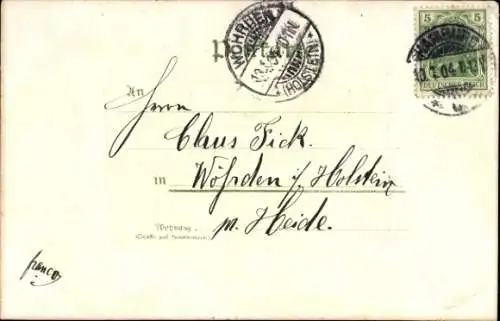 Postkarte
WÖHRDEN
(HOLSTEIN)
5 5
DEUTSCHES REICH
An
Herrn
Claus Fick.
in Wöhrden i/ Holstein
p. Heide.
Wohnung
(Straße und Hausnummer)
franco